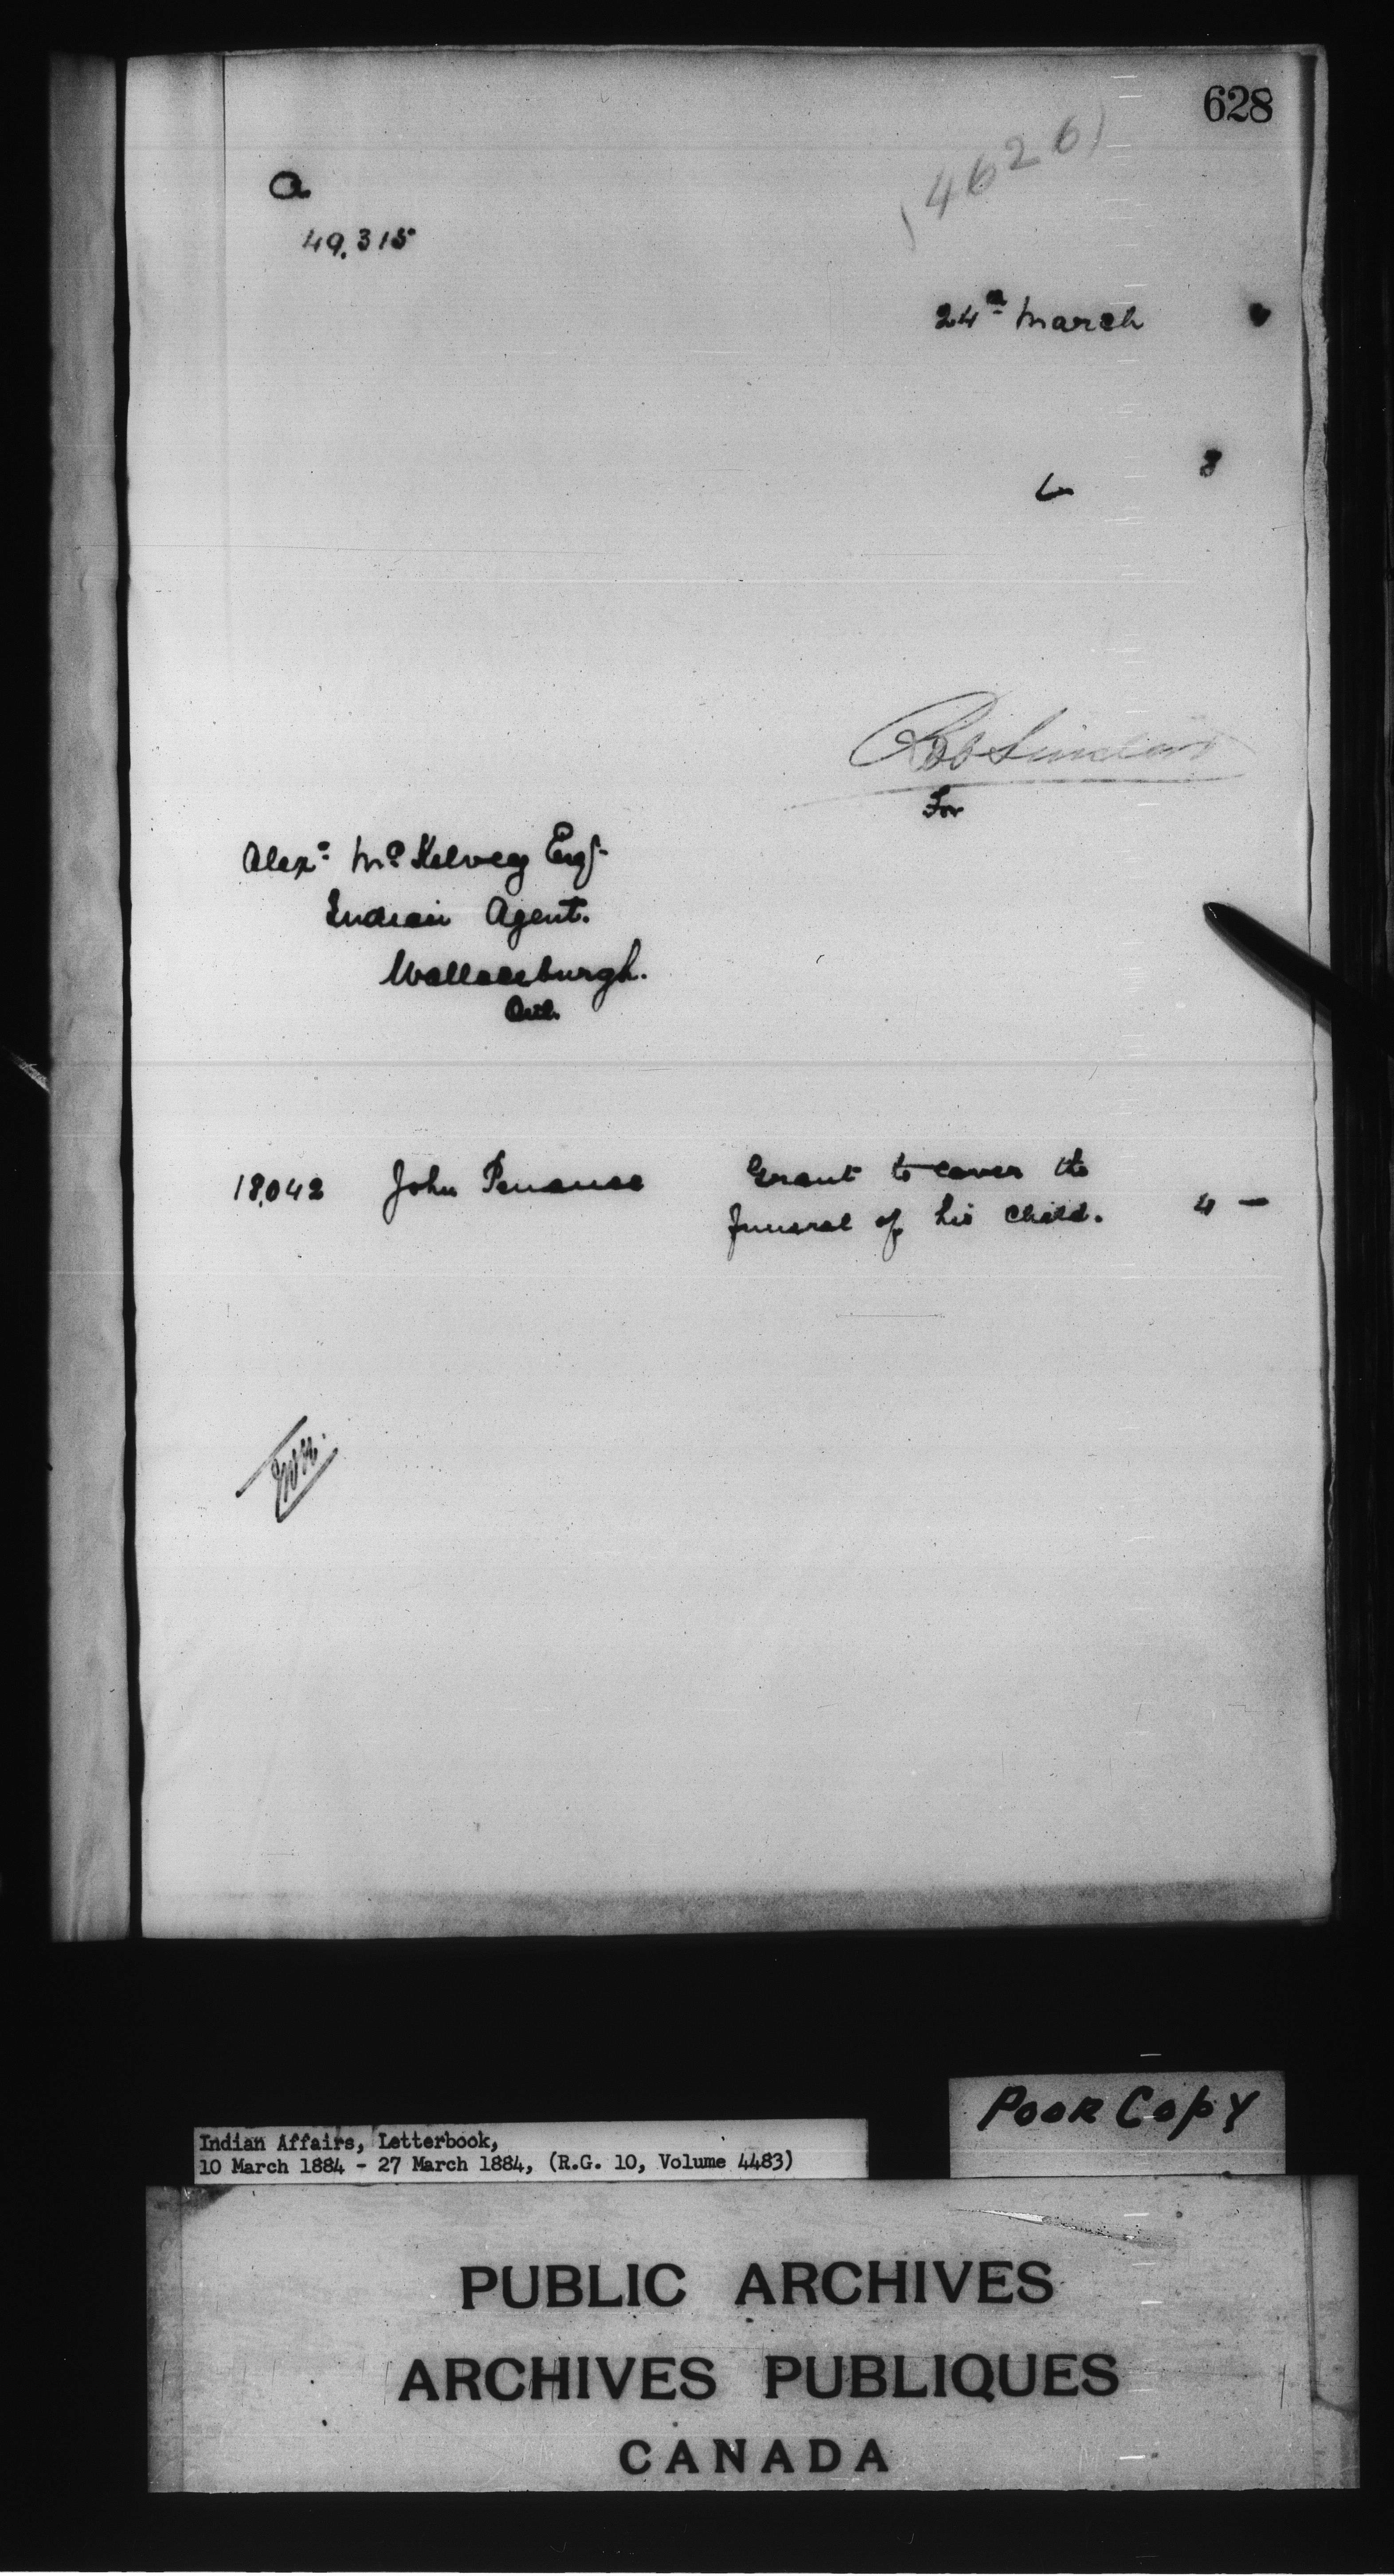 628
(4626)
a
49,315
24th March 4
8
Robt Sinclair
For
Alexr McKelvey Esqr
Indian Agent.
Wallaceburgh.
Ont.
18,042 John Penance Grant to cover the
funeral of his child. 4 —
Poor Copy
Indian Affairs, Letterbook,
10 March 1884 - 27 March 1884, (R.G. 10, Volume 4483)
PUBLIC ARCHIVES
ARCHIVES PUBLIQUES
CANADA